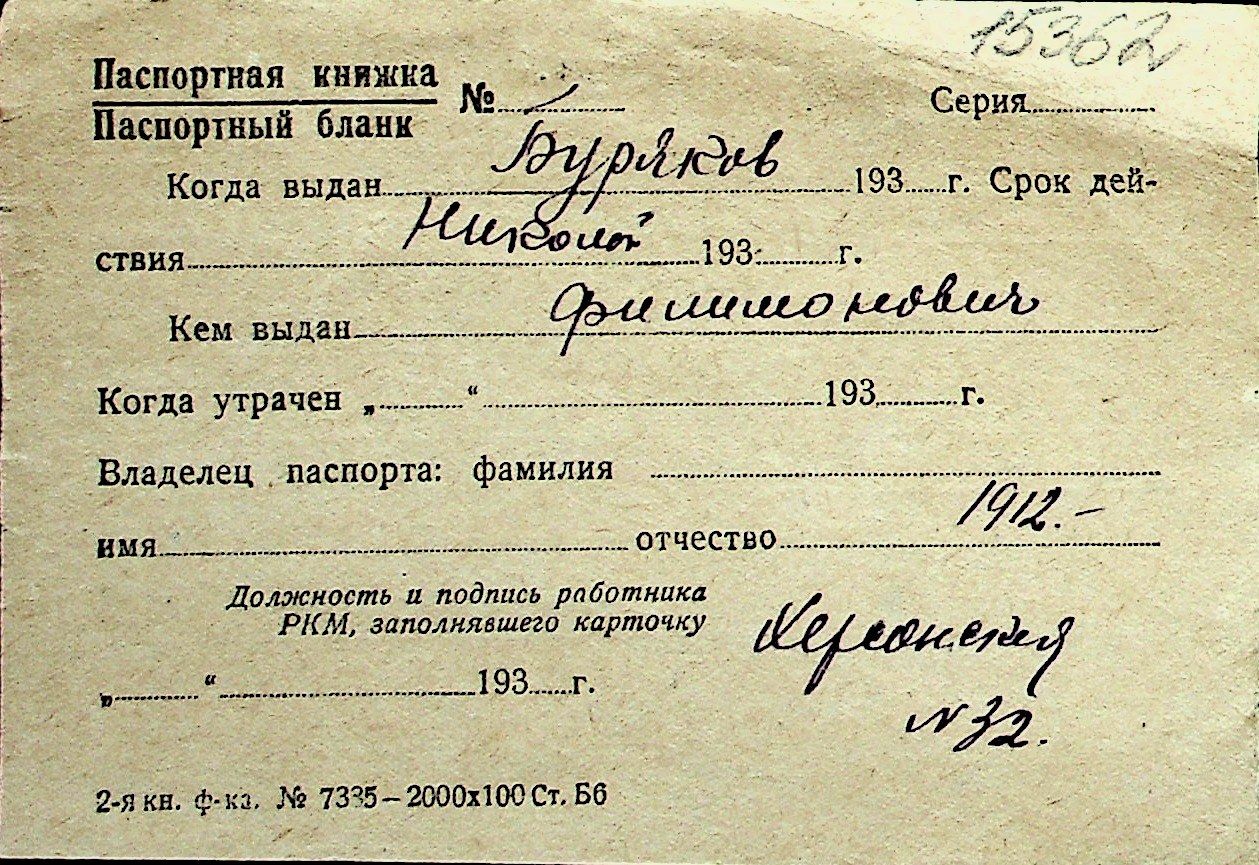 15362
Паспортная книжка
Паспортный бланк
№ Серия
Буряков
Когда выдан 193 г. Срок дей-
Николай
ствия 193 г.
Филимонович
Кем выдан
Когда утрачен „ “ 193 г.
Владелец паспорта: фамилия
1912.-
имя отчество
Должность и подпись работника
РКМ, заполнявшего карточку
Херсонская
„ “ 193 г.
N 32.
2-я кн. ф-ка. № 7335—2000х100 Ст. Б6